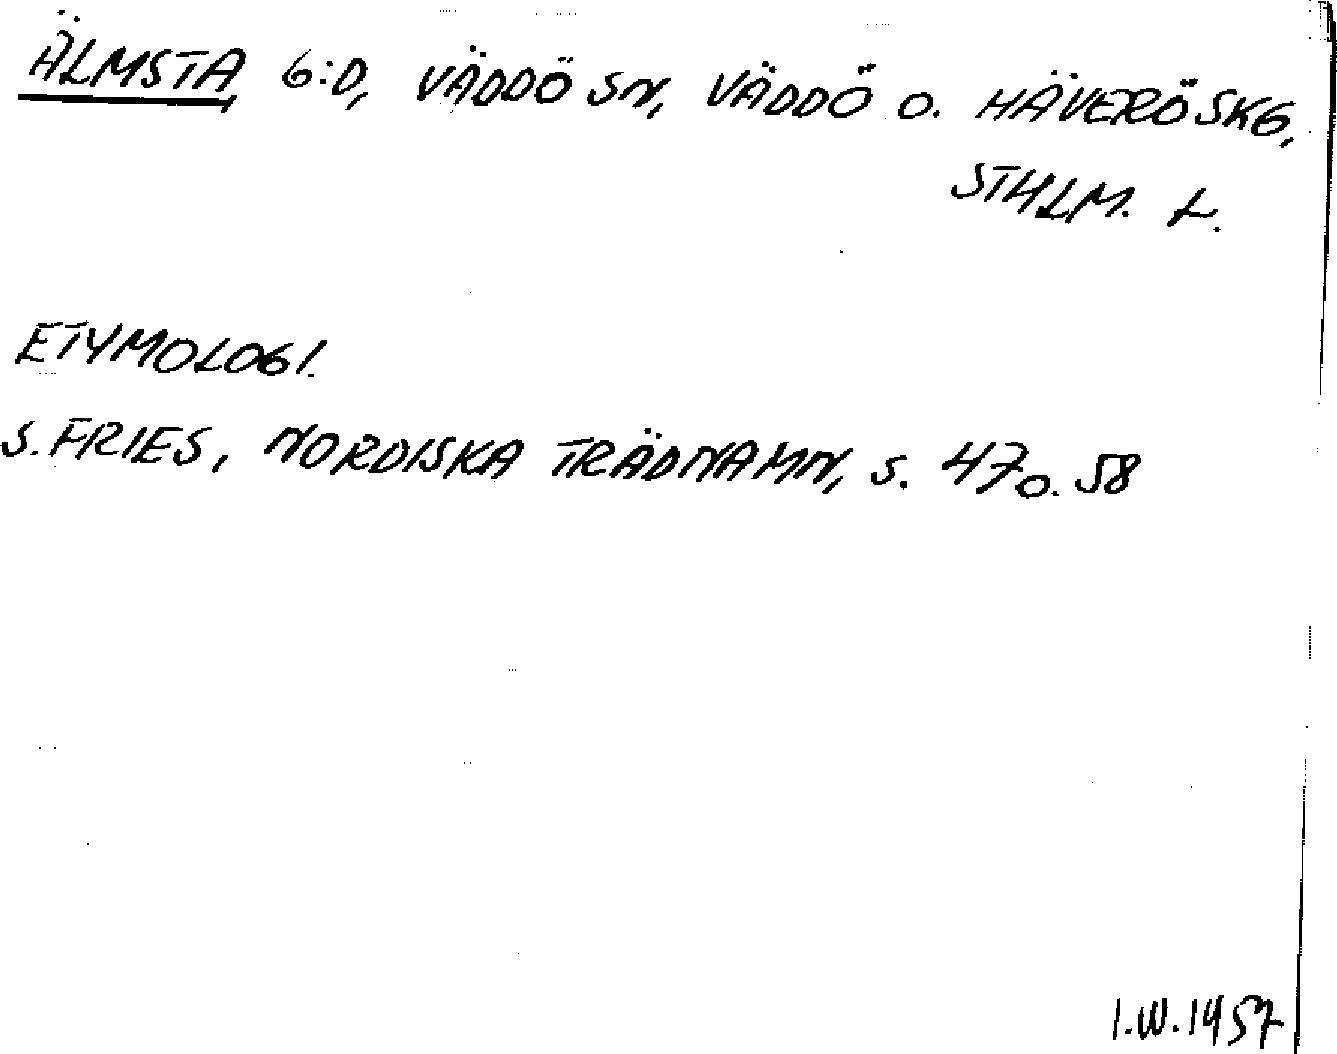 ÄLMSTA, G:D, VÄDDÖ SN, VÄDDÖ O. HÄVERÖ SKG,
STHLM. L.
ETYMOLOGI.
S. FRIES, NORDISKA TRÄDNAMN, S. 47 O. 58
I.W. 1957